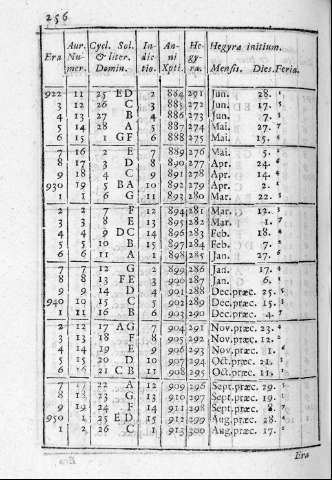 256
Era Aur. Numer. Cycl. Sol. & liter. Domin. Indictio. Anni Xpti. Hegyra. Hegyra initium. Mensis. Dies. Feria.
922 11 25 ED 2 884 271 Jun. 28.
3 12 26 C 3 885 272 Jun. 17.
4 13 27 B 4 886 273 Jun. 7.
5 14 28 A 5 887 274 Mai. 27.
6 15 1 GF 6 888 275 Mai. 15.
7 16 2 E 7 889 276 Mai. 5.
8 17 3 D 8 890 277 Apr. 24.
9 18 4 C 9 891 278 Apr. 14.
930 19 5 BA 10 892 279 Apr. 2.
1 1 6 G 11 893 280 Mar. 22.
2 2 7 F 12 894 281 Mar. 12.
3 3 8 E 13 895 282 Mar. 1.
4 4 9 DC 14 896 283 Feb. 18.
5 5 10 B 15 897 284 Feb. 7.
6 6 11 A 1 898 285 Jan. 27.
7 7 12 G 2 899 286 Jan. 17.
8 8 13 FE 3 900 287 Jan. 6.
9 9 14 D 4 901 288 Dec.præc. 25.
940 10 15 C 5 902 289 Dec.præc. 15.
1 11 16 B 6 903 290 Dec.præc. 4.
2 12 17 AG 7 904 291 Nov.præc. 23.
3 13 18 F 8 905 292 Nov.præc. 12.
4 14 19 E 9 906 293 Nov.præc. 1.
5 15 20 D 10 907 294 Oct.præc. 21.
6 16 21 CB 11 908 295 Oct.præc. 11.
7 17 22 A 12 909 296 Sept.præc. 29.
8 18 23 G 13 910 297 Sept.præc. 19.
9 19 24 F 14 911 298 Sept.præc. 8.
950 1 25 ED 15 912 299 Aug.præc. 28.
1 2 26 C 1 913 300 Aug.præc. 17.
Era